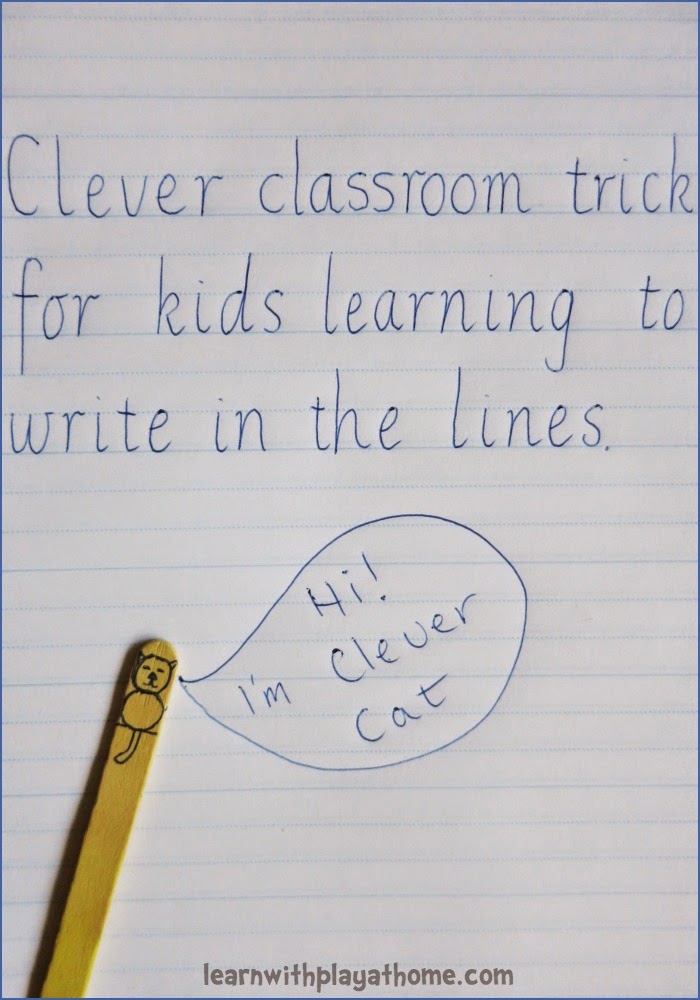 Clever classroom trick
for kids learning to
write in the lines.
Hi!
I'm Clever
Cat
learnwithplayathome.com